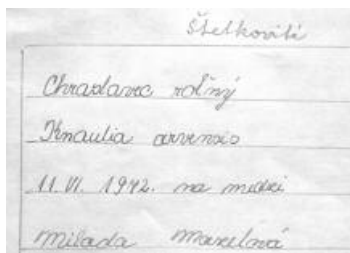 Štetkovité
Chrastavec roľný
Knautia arvensis
11. VI. 1972. na medzi
Milada